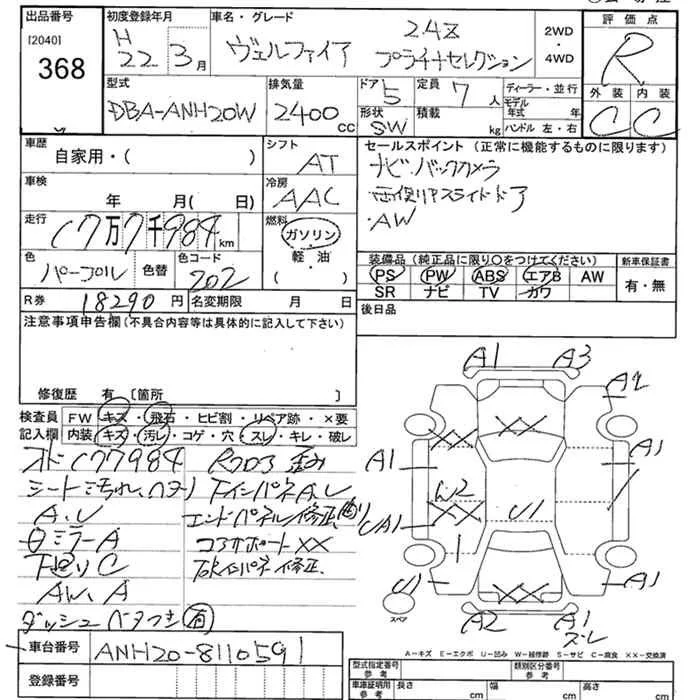 出品番号 初度登録年月 車名・グレード 評価点
[2040] H 22年 3月 ヴェルファイア 2.4Z プラチナセレクション 2WD・4WD R
368
型式 排気量 ドア 定員 ディーラー・並行 外装 内装
DBA-ANH20W 2400cc 5 7人 モデル年式 年 C C
形状 SW 積載 kg ハンドル 左・右
車歴 自家用・( ) シフト AT セールスポイント (正常に機能するものに限ります)
車検 年 月( 日) 冷房 AAC ナビ・バックカメラ
両側Pスライドドア
・AW
走行 17万7千984km 燃料 ガソリン・軽油・( )
装備品 (純正品に限り○をつけてください) 新車保証書
色 パープル 色替 色コード 202 PS PW ABS エアB AW 有・無
SR ナビ TV カワ
R券 18290円 名変期限 月 日 後日品
注意事項申告欄(不具合内容等は具体的に記入して下さい)
修復歴 有 〔箇所 〕
検査員記入欄 FW キズ・飛石・ヒビ割・リペア跡・×要
内装 キズ・汚レ・コゲ・穴・スレ・キレ・破レ
オドC 177984
シート汚れ、ヘタリ
A、U
ミラーA
下廻りC
AW、A
ダッシュベタつき有
Rフロア歪み
エンドパネル修正有り
コアサポートXX
修正
A1 A3 A2
A1 XX XX A1
W2 XX U1
UA1
U1 XX A1
A2 A1 スレ
スペア
A-キズ E-エクボ U-凹み W-補修跡 S-サビ C-腐食 XX-交換済
車台番号 ANH20-8110591
登録番号
型式指定番号 参考 類別区分番号 参考
車庫証明用 参考 長さ cm 幅 cm 高さ cm